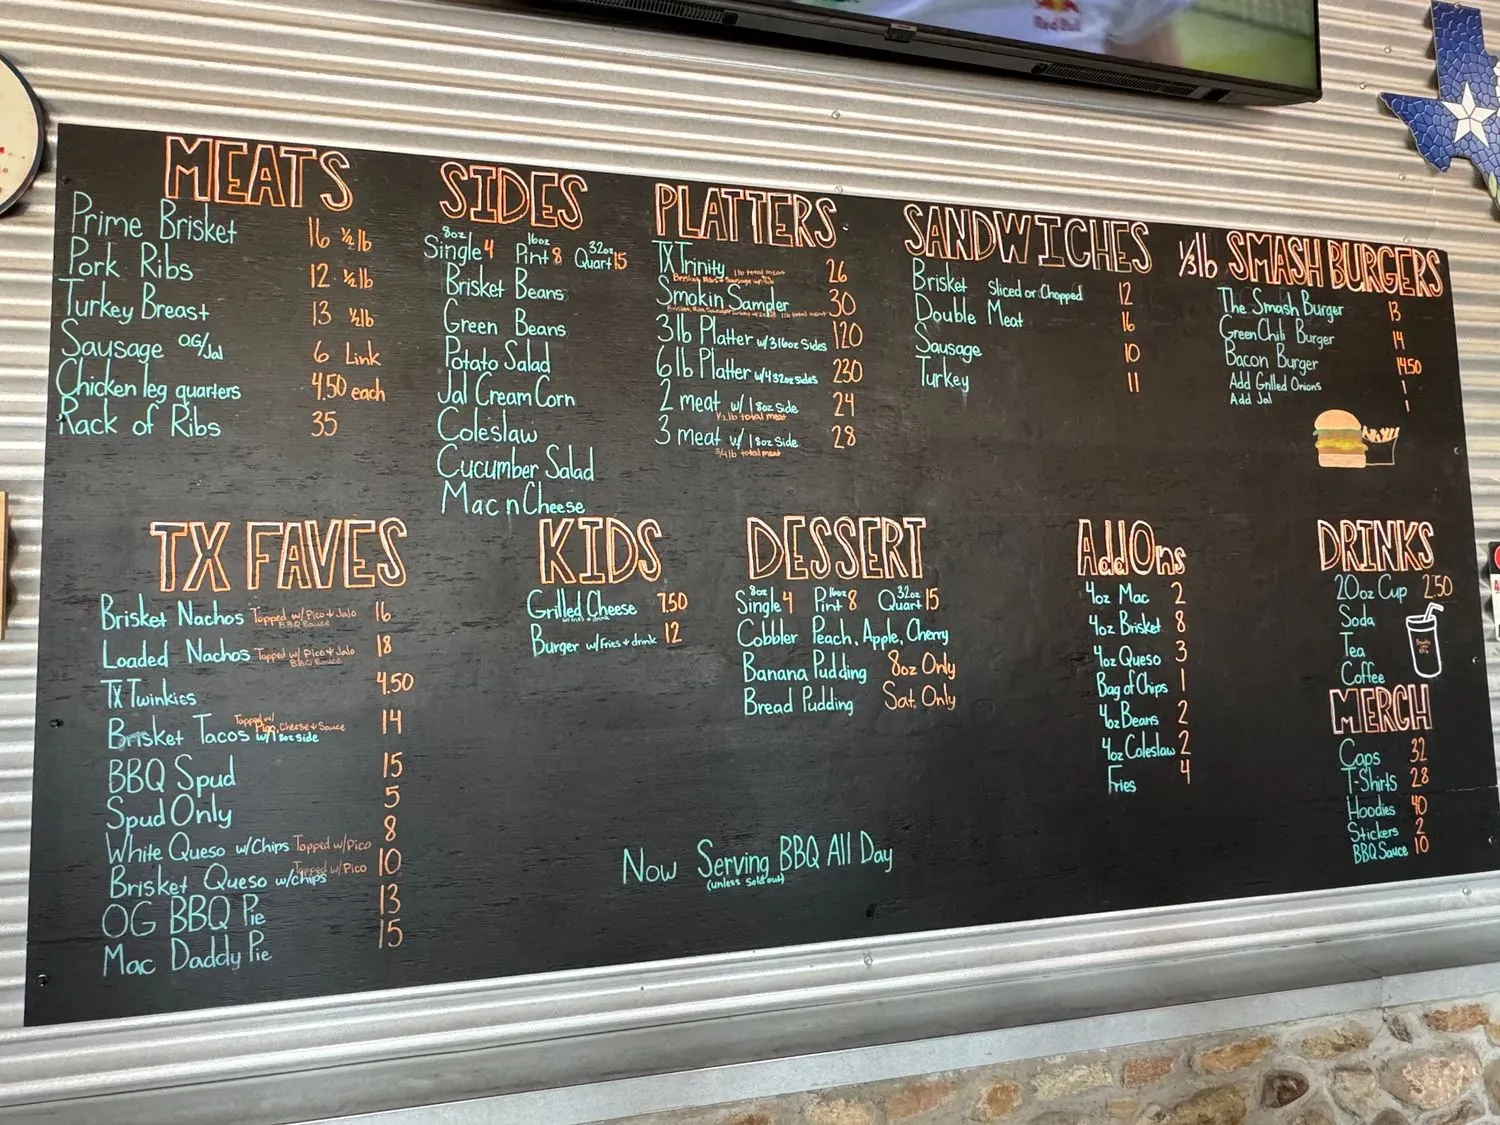 Red Bull
MEATS
Prime Brisket 16 ½ lb
Pork Ribs 12 ½ lb
Turkey Breast 13 ½ lb
Sausage OG/Jal 6 Link
Chicken leg quarters 4.50 each
Rack of Ribs 35
SIDES
8oz Single 4 16oz Pint 8 32oz Quart 15
Brisket Beans
Green Beans
Potato Salad
Jal Cream Corn
Coleslaw
Cucumber Salad
Mac n Cheese
PLATTERS
TX Trinity 1lb total meat 26
Brisket, Ribs + Sausage
Smokin Sampler 30
1lb total meat
3lb Platter w/3 16oz Sides 120
6lb Platter w/4 32oz Sides 230
2 meat w/ 1 8oz Side 24
½ lb total meat
3 meat w/ 1 8oz Side 28
3/4 lb total meat
SANDWICHES
Brisket Sliced or Chopped 12
Double Meat 16
Sausage 10
Turkey 11
⅓ lb SMASH BURGERS
The Smash Burger 13
Green Chili Burger 14
Bacon Burger 14.50
Add Grilled Onions 1
Add Jal 1
TX FAVES
Brisket Nachos Topped w/ Pico + Jalo 16
BBQ Sauce
Loaded Nachos Topped w/ Pico + Jalo 18
BBQ Sauce
TX Twinkies 4.50
Brisket Tacos Topped w/ Pico, Cheese + Sauce 14
w/ 1 8oz side
BBQ Spud 15
Spud Only 5
White Queso w/Chips Topped w/Pico 8
Brisket Queso w/chips Topped w/Pico 10
OG BBQ Pie 13
Mac Daddy Pie 15
KIDS
Grilled Cheese 7.50
w/fries + drink
Burger w/Fries + drink 12
DESSERT
8oz Single 4 16oz Pint 8 32oz Quart 15
Cobbler Peach, Apple, Cherry
Banana Pudding 8oz Only
Bread Pudding Sat. Only
Add Ons
4oz Mac 2
4oz Brisket 8
4oz Queso 3
Bag of Chips 1
4oz Beans 2
4oz Coleslaw 2
Fries 4
DRINKS
20oz Cup 2.50
Soda
Tea
Coffee
MERCH
Caps 32
T-Shirts 28
Hoodies 40
Stickers 2
BBQ Sauce 10
Now Serving BBQ All Day
(unless sold out)